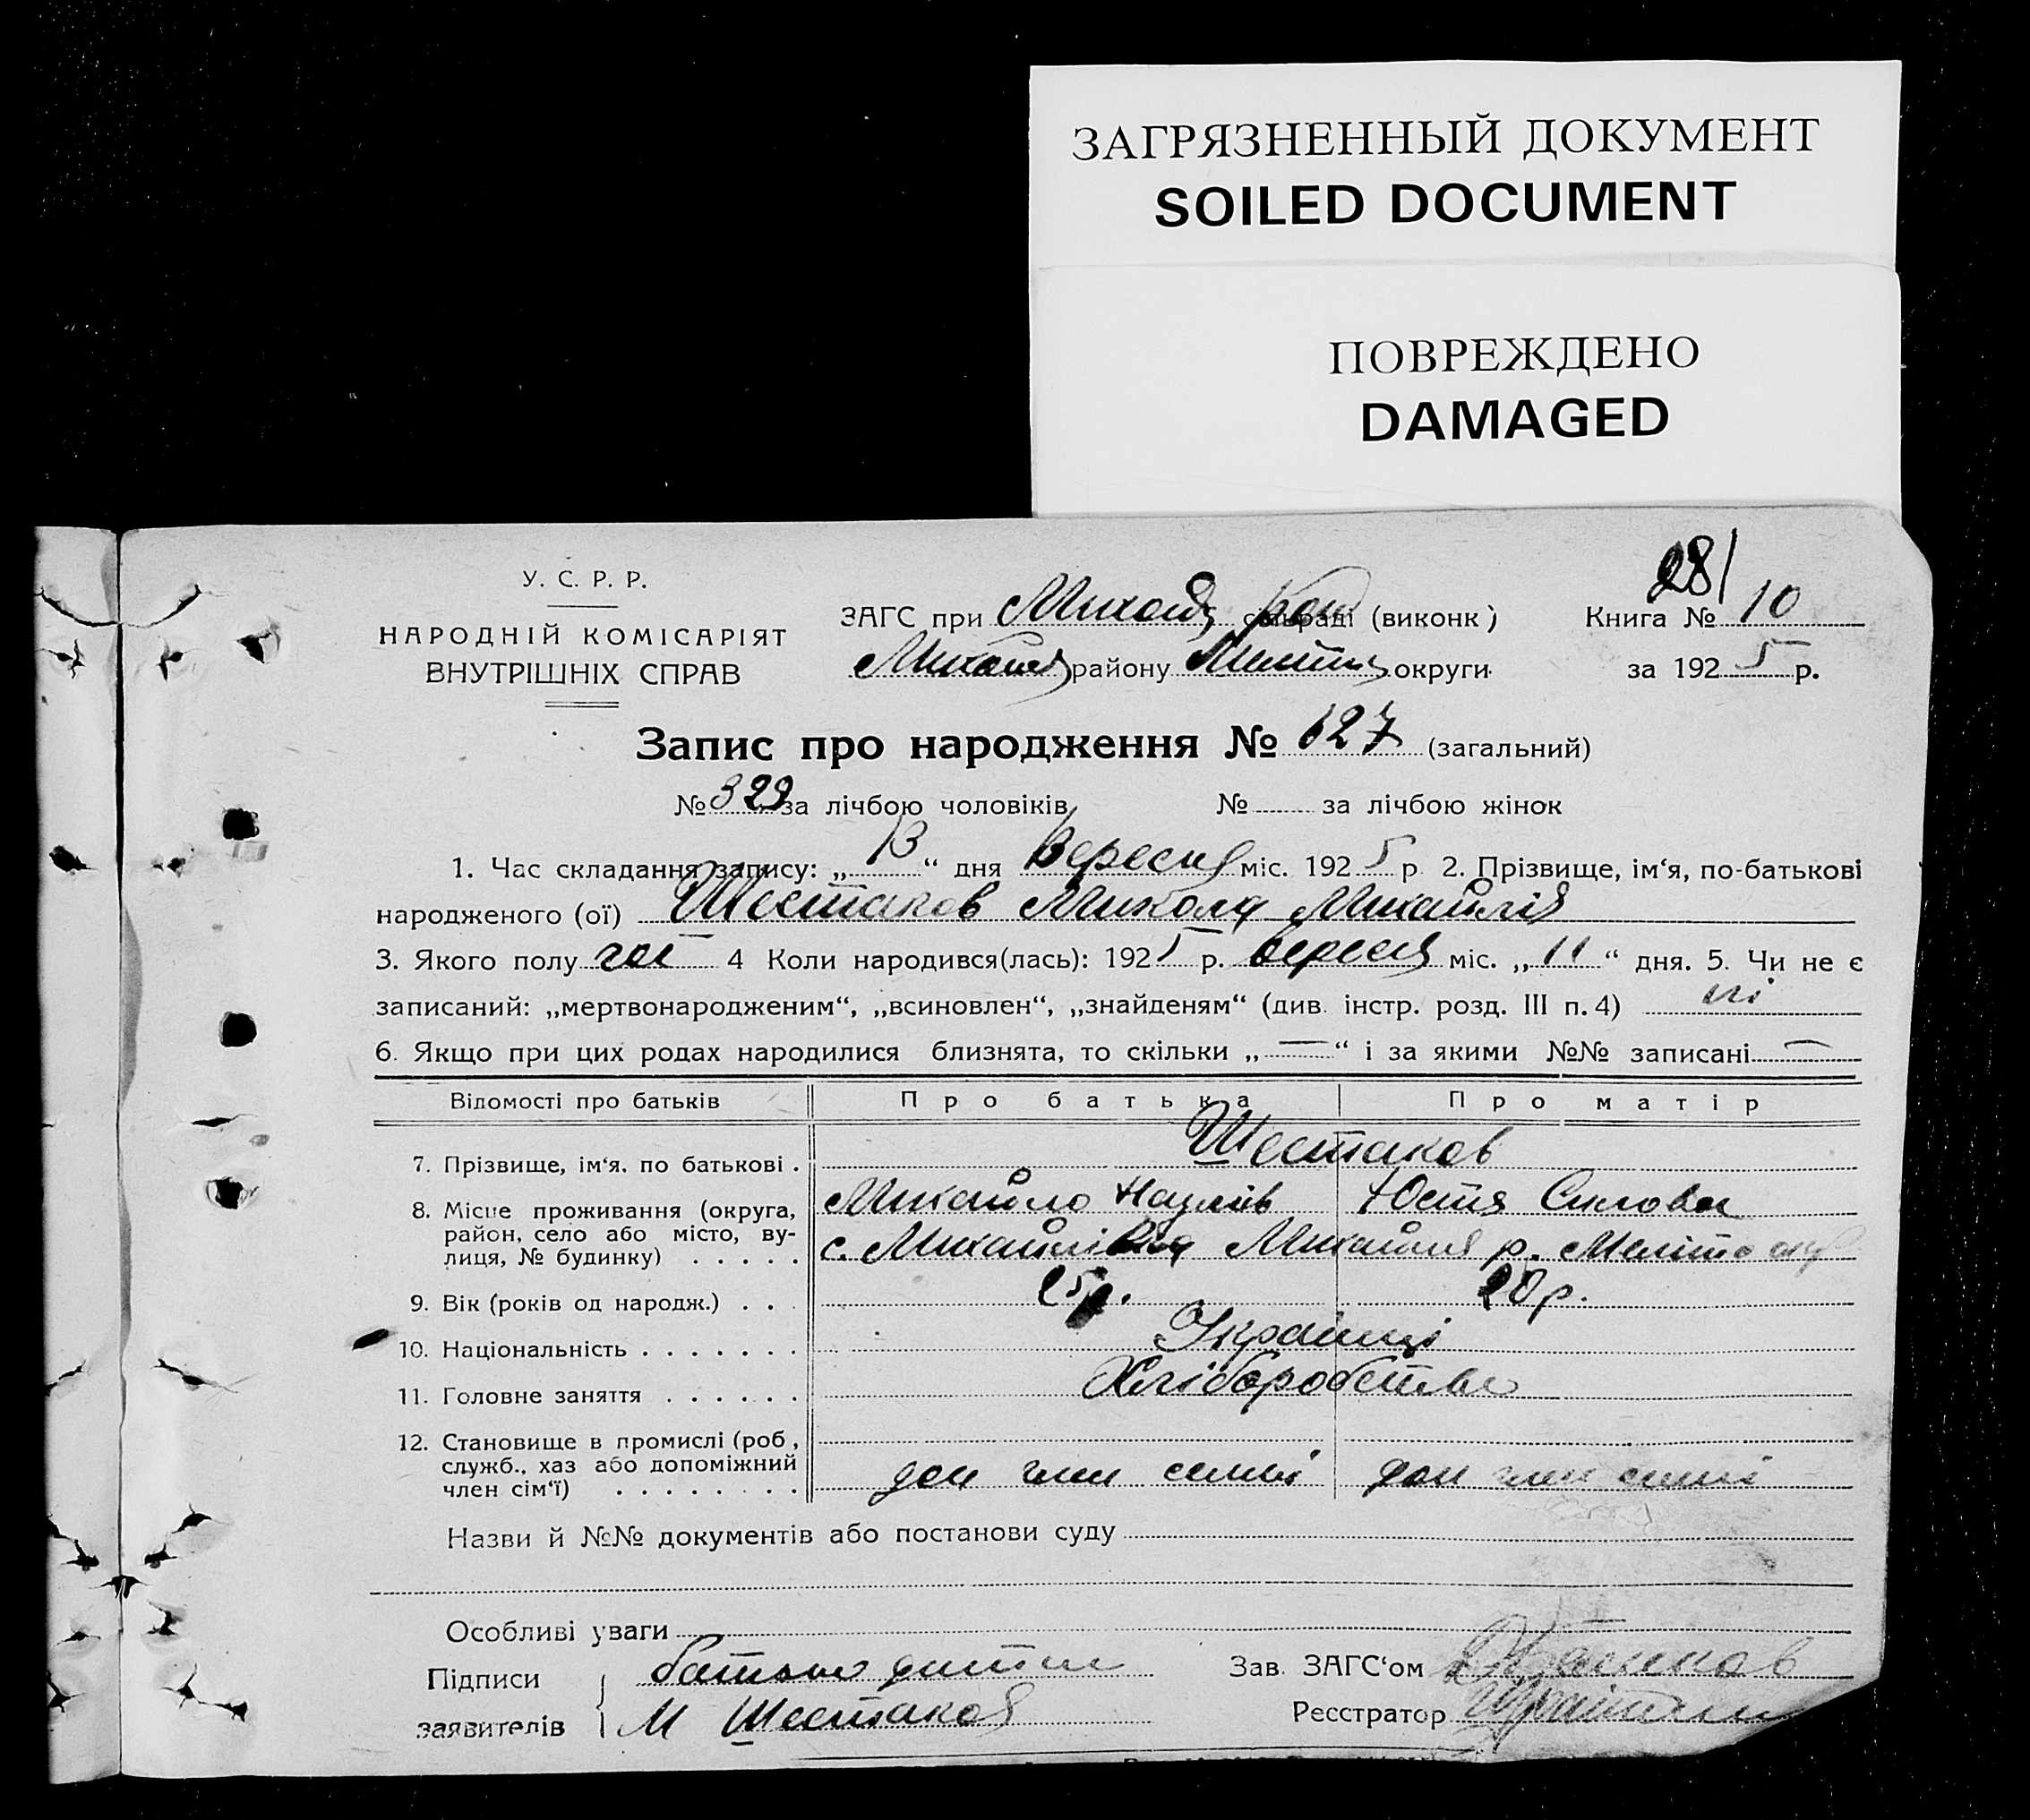 ЗАГРЯЗНЕННЫЙ ДОКУМЕНТ
SOILED DOCUMENT
ПОВРЕЖДЕНО
DAMAGED
281
У. С. Р. Р.
НАРОДНІЙ КОМІСАРІЯТ
ВНУТРІШНІХ СПРАВ
ЗАГС при (виконк)
району Меліт округи
Книга № 10
за 1925 р.
Запис про народження № 627 (загальний)
№ 329 за лічбою чоловіків № за лічбою жінок
1. Час складання запису: „13“ дня Вересня міс. 1925 р 2. Прізвище, ім‘я, по-батькові
народженого (ої) Шестаков Микола Михайлів
3. Якого полу чол 4 Коли народився(лась): 1925 р. Вересня міс. „11“ дня. 5. Чи не є
записаний: „мертвонародженим“, „всиновлен“, „знайденям“ (див. інстр. розд. III п. 4) ні
6. Якщо при цих родах народилися близнята, то скільки „—“ і за якими №№ записані —
Відомості про батьків Про батька Про матір
7. Прізвище, ім‘я, по батькові . Шестаков
Михайло Наумів Юстя Силовна
8. Місце проживання (округа,
район, село або місто, ву-
лиця, № будинку) . . . . . с. Михайлівка р.
9. Вік (років од народж.) . . 25р. 20р.
10. Національність . . . . . . . Українці
11. Головне заняття . . . . . . Хліборобство
12. Становище в промислі (роб,
служб., хаз або допоміжний
член сім‘ї) . . . . . . . . доп член семьї доп член семьї
Назви й №№ документів або постанови суду
Особливі уваги
Підписи
заявителів
батько дитини
М Шестаков
Зав. ЗАГС‘ом
Реєстратор